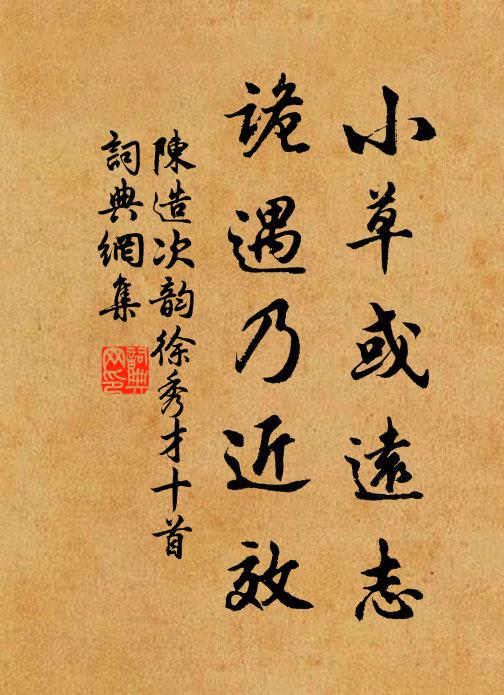 小草或遠志
詭遇乃近效
陳造次韵徐秀才十首
詞典網集
詞典
网印